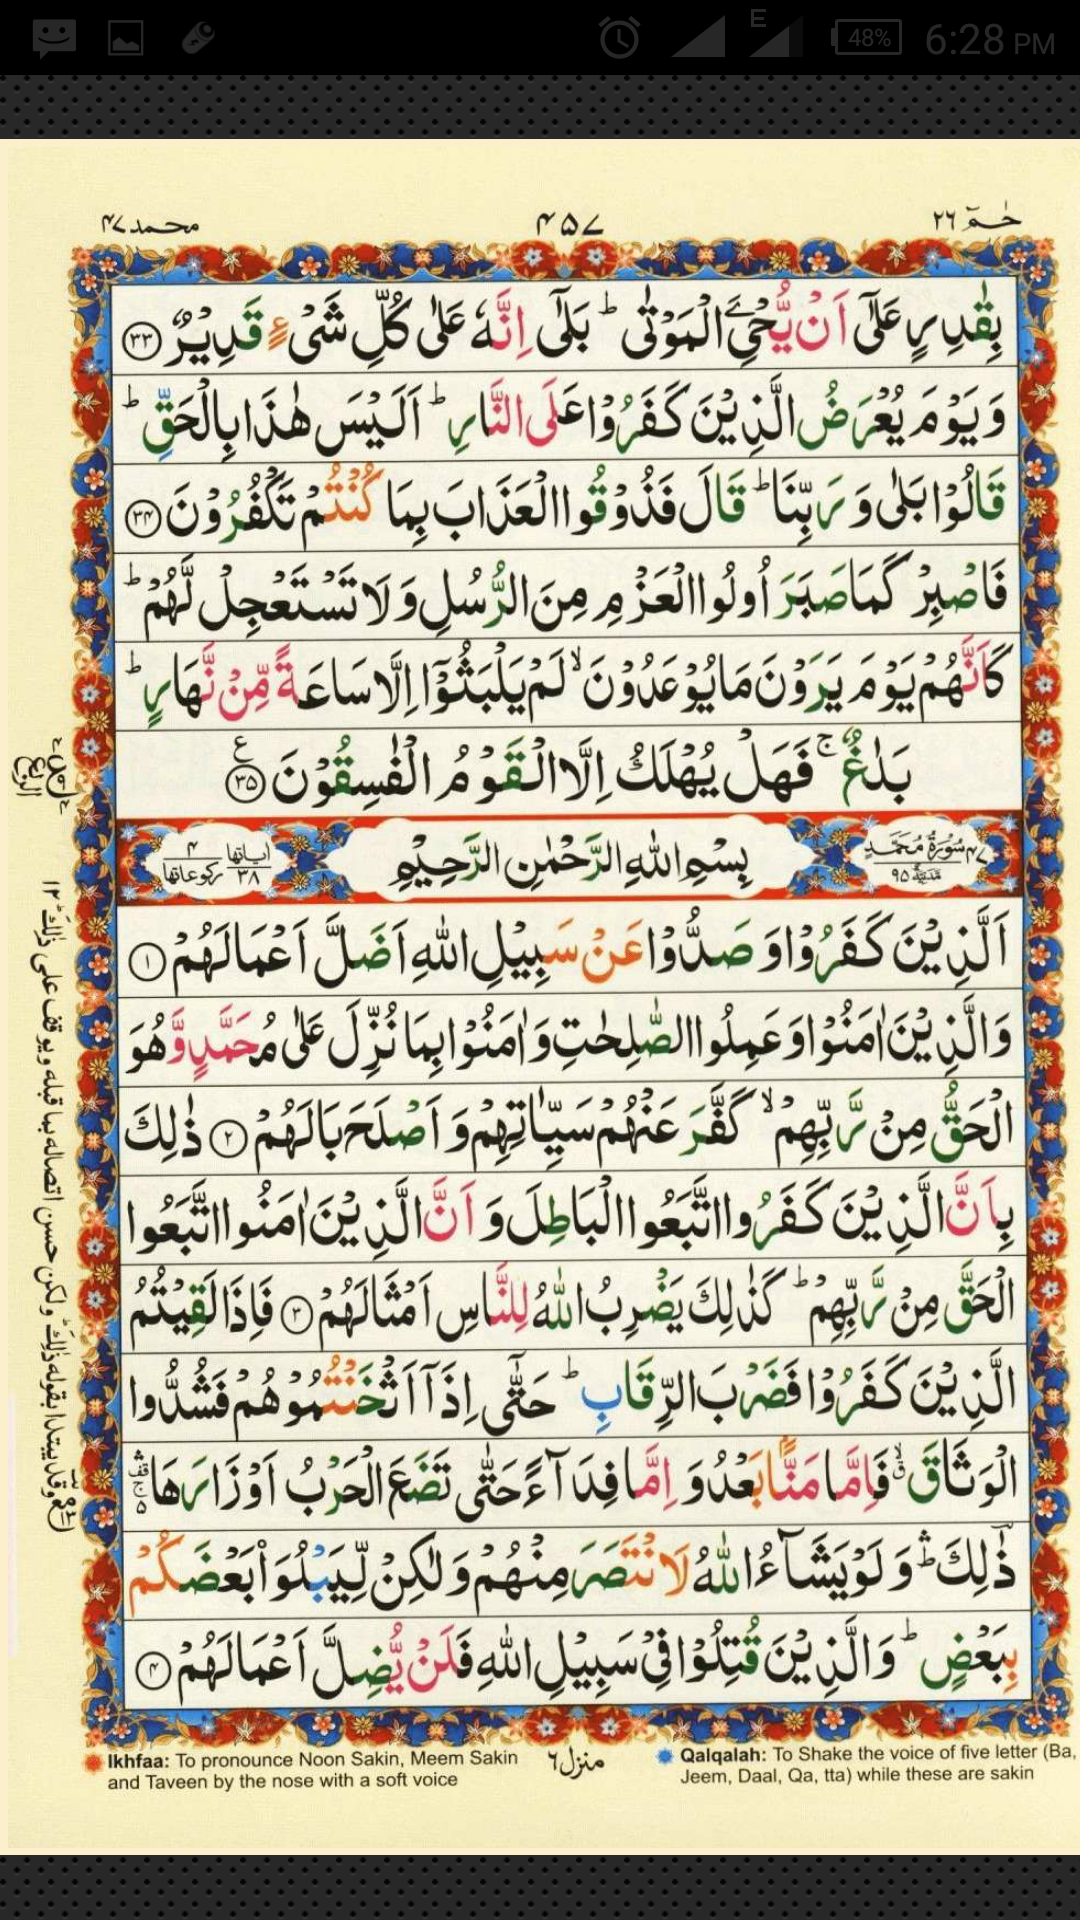 48% 6:28 PM
E
محمد ۴۷
۴۵۷
حٰمٓ ۲۶
بِقٰدِرٍ عَلٰٓى اَنْ يُّحْيِۦَ الْمَوْتٰى ؕ بَلٰٓى اِنَّهٗ عَلٰى كُلِّ شَىْءٍ قَدِيْرٌ ﴿۳۳﴾
وَيَوْمَ يُعْرَضُ الَّذِيْنَ كَفَرُوْا عَلَى النَّارِ ؕ اَلَيْسَ هٰذَا بِالْحَقِّ ؕ
قَالُوْا بَلٰى وَ رَبِّنَا ؕ قَالَ فَذُوْقُوا الْعَذَابَ بِمَا كُنْتُمْ تَكْفُرُوْنَ ﴿۳۴﴾
فَاصْبِرْ كَمَا صَبَرَ اُولُوا الْعَزْمِ مِنَ الرُّسُلِ وَلَا تَسْتَعْجِلْ لَّهُمْ ؕ
كَاَنَّهُمْ يَوْمَ يَرَوْنَ مَا يُوْعَدُوْنَ ۙ لَمْ يَلْبَثُوْۤا اِلَّا سَاعَةً مِّنْ نَّهَارٍ ؕ
بَلٰغٌ ۚ فَهَلْ يُهْلَكُ اِلَّا الْقَوْمُ الْفٰسِقُوْنَ ﴿۳۵﴾ ع
۴۷ سُوْرَةُ مُحَمَّدٍ مَّدَنِيَّةٌ ۹۵
بِسْمِ اللّٰهِ الرَّحْمٰنِ الرَّحِيْمِ
اٰياتها ۳۸ ركوعاتها ۴
اَلَّذِيْنَ كَفَرُوْا وَ صَدُّوْا عَنْ سَبِيْلِ اللّٰهِ اَضَلَّ اَعْمَالَهُمْ ﴿۱﴾
وَالَّذِيْنَ اٰمَنُوْا وَ عَمِلُوا الصّٰلِحٰتِ وَ اٰمَنُوْا بِمَا نُزِّلَ عَلٰى مُحَمَّدٍ وَّهُوَ
الْحَقُّ مِنْ رَّبِّهِمْ ۙ كَفَّرَ عَنْهُمْ سَيِّاٰتِهِمْ وَ اَصْلَحَ بَالَهُمْ ﴿۲﴾ ذٰلِكَ
بِاَنَّ الَّذِيْنَ كَفَرُوا اتَّبَعُوا الْبَاطِلَ وَ اَنَّ الَّذِيْنَ اٰمَنُوا اتَّبَعُوا
الْحَقَّ مِنْ رَّبِّهِمْ ؕ كَذٰلِكَ يَضْرِبُ اللّٰهُ لِلنَّاسِ اَمْثَالَهُمْ ﴿۳﴾ فَاِذَا لَقِيْتُمُ
الَّذِيْنَ كَفَرُوْا فَضَرْبَ الرِّقَابِ ؕ حَتّٰۤى اِذَاۤ اَثْخَنْتُمُوْهُمْ فَشُدُّوا
الْوَثَاقَ ۙ فَاِمَّا مَنًّۢا بَعْدُ وَ اِمَّا فِدَآءً حَتّٰى تَضَعَ الْحَرْبُ اَوْزَارَهَا
ذٰۛلِكَ ؕۛ وَ لَوْ يَشَآءُ اللّٰهُ لَا نْتَصَرَ مِنْهُمْ وَ لٰكِنْ لِّيَبْلُوَا۟ بَعْضَكُمْ
بِبَعْضٍ ؕ وَالَّذِيْنَ قُتِلُوْا فِىْ سَبِيْلِ اللّٰهِ فَلَنْ يُّضِلَّ اَعْمَالَهُمْ ﴿۴﴾
Ikhfaa: To pronounce Noon Sakin, Meem Sakin
and Taveen by the nose with a soft voice
منزل ٦
Qalqalah: To Shake the voice of five letter (Ba,
Jeem, Daal, Qa, tta) while these are sakin